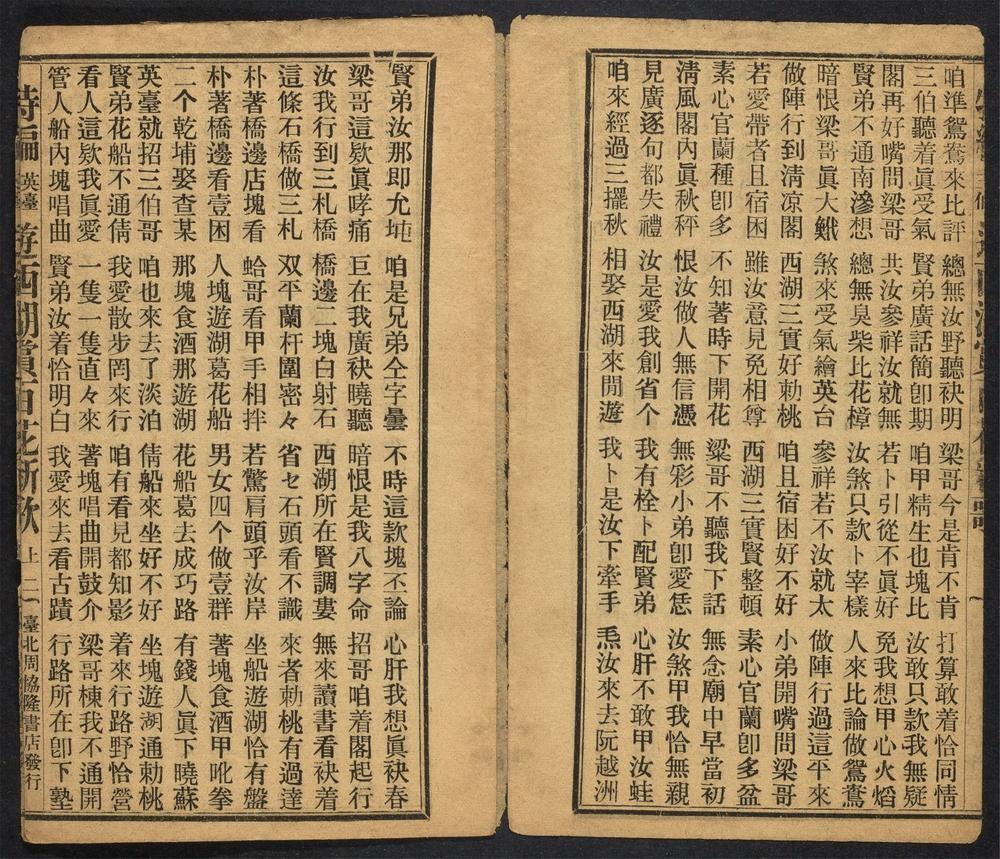 咱準鴛鴦來比評 總無汝野聽袂明 梁哥今是肯不肯 打算敢着恰同情
三伯聽着眞受氣 賢弟廣話簡卽期 咱甲精生也塊比 汝敢只款我無疑
閣再好嘴問梁哥 共汝參祥汝就無 若卜引從不眞好 免我想甲心火熖
賢弟不通南滲想 總無臭柴比花樟 汝煞只款卜宰樣 人來比論做鴛鴦
暗恨梁哥眞大鱤 煞來受氣繪英台 參祥若不汝就太 做陣行過這平來
做陣行到淸凉閣 西湖三實好勅桃 咱且宿困好不好 小弟開嘴問梁哥
若愛帶者且宿困 雖汝意見免相尊 西湖三實賢整頓 素心官蘭卽多盆
素心官蘭種卽多 不知著時下開花 梁哥不聽我下話 無念廟中早當初
淸風閣內眞秋秤 恨汝做人無信憑 無彩小弟卽愛恁 汝煞甲我恰無親
見廣逐句都失禮 汝是愛我創省个 我有栓卜配賢弟 心肝不敢甲汝蛙
咱來經過三擺秋 相娶西湖來閒遊 我卜是汝下牽手 𤆬汝來去阮越洲
賢弟汝那卽允坉 咱是兄弟仝字曇 不時這款塊丕論 心肝我想眞袂春
梁哥這欵眞哮痛 巨在我廣袂曉聽 暗恨是我八字命 招哥咱着閣起行
汝我行到三札橋 橋邊二塊白射石 西湖所在賢調婁 無來讀書看袂着
這條石橋做三札 双平蘭杆圍密々 省七石頭看不識 來者勅桃有過達
朴著橋邊店塊看 蛤哥看甲手相拌 若驚肩頭乎汝岸 坐船遊湖恰有盤
朴著橋邊看壹困 人塊遊湖葛花船 男女四个做壹群 著塊食酒甲叱拳
二个乾埔娶查某 那塊食酒那遊湖 花船葛去成巧路 有錢人眞下曉蘇
英臺就招三伯哥 咱也來去了淡泊 倩船來坐好不好 坐塊遊湖通勅桃
賢弟花船不通倩 我愛散步罔來行 咱有看見都知影 着來行路野恰營
看人這欵我眞愛 一隻一隻直々來 著塊唱曲開鼓介 梁哥棟我不通開
管人船內塊唱曲 賢弟汝着恰明白 我愛來去看古蹟 行路所在卽下墊
特編 英臺 遊西湖賞百花新歌 上 二 臺北周協隆書店發行